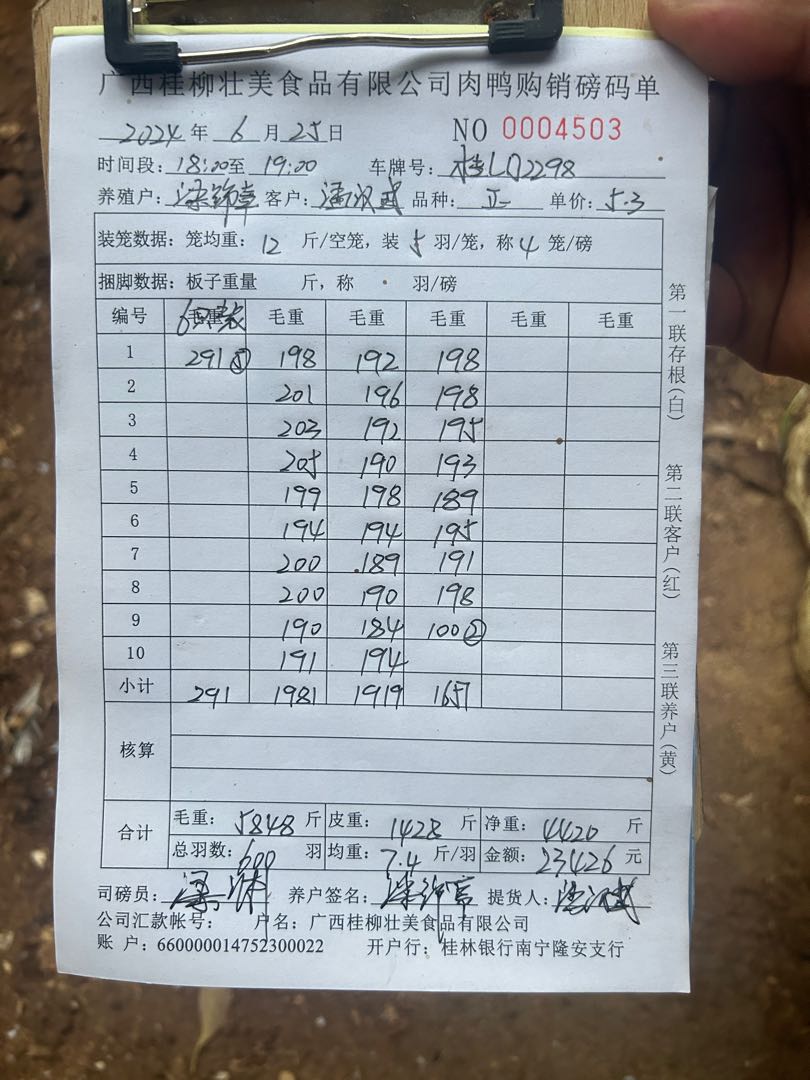 广西桂柳壮美食品有限公司肉鸭购销磅码单
2024 年 6 月 25 日 NO 0004503
时间段: 18:00 至 19:00 车牌号: 桂LQ2298
养殖户: 客户: 潘汉武 品种: 正 单价: 5.3
装笼数据: 笼均重: 12 斤/空笼, 装 5 羽/笼, 称 4 笼/磅
捆脚数据: 板子重量 斤, 称 羽/磅
编号 毛重 毛重 毛重 毛重 毛重
1 291⑤ 198 192 198
2 201 196 198
3 203 192 195
4 205 190 193
5 199 198 189
6 194 194 195
7 200 189 191
8 200 190 198
9 190 184 100②
10 191 194
小计 291 1981 1919 1657
核算
合计
毛重: 5848 斤 皮重: 1428 斤 净重: 4420 斤
总羽数: 600 羽 均重: 7.4 斤/羽 金额: 23426 元
司磅员: 养户签名: 提货人: 潘汉武
公司汇款帐号: 户名: 广西桂柳壮美食品有限公司
账 户: 660000014752300022 开户行: 桂林银行南宁隆安支行
第一联存根(白)
第二联客户(红)
第三联养户(黄)